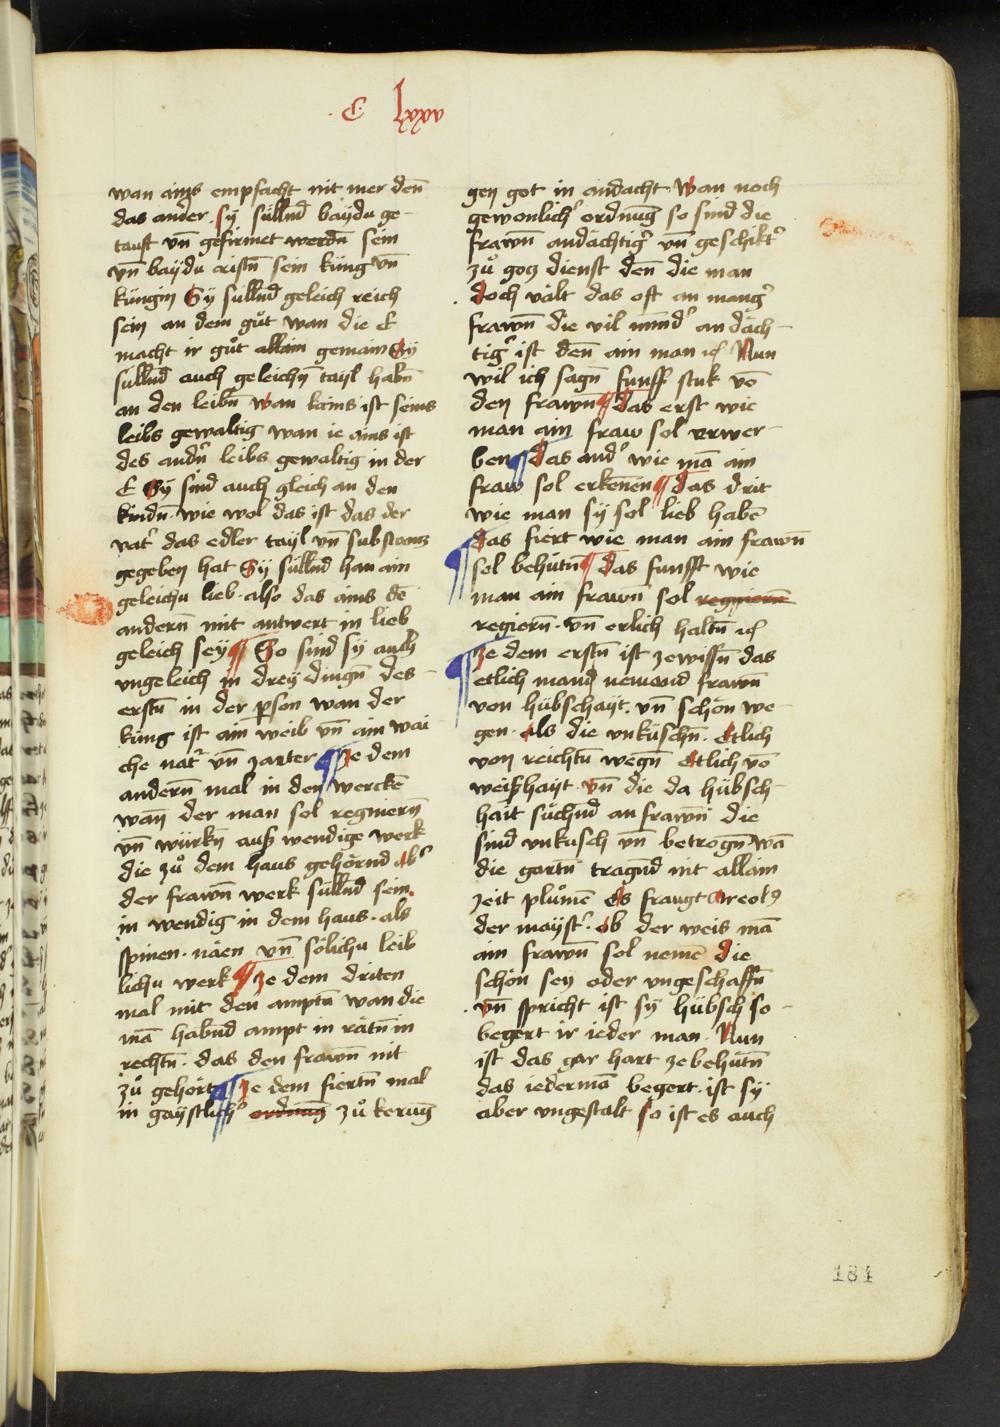 C lxxv
wan ains empfacht nit mer den̄
das ander. sÿ süllnd baÿdu ge-
tauft vn̄ gefirmet werdn̄ sein
vn̄ baÿdu cristn̄ sein küng vn̄
küngin Sÿ süllnd geleich reich
sein an dem gůt wan die E
macht ir gůt allain gemain Sÿ
süllnd auch geleichn̄ tayl habn̄
an den leibn̄ wan kains ist seins
leibs gewaltig wan ie ains ist
des andn̄ leibs gewaltig in der
E Sÿ sind auch gleich an den
kindn̄. wie wol das ist das der
vat' das edler tayl vn̄ substantz
gegeben hat Sÿ süllnd han ain
geleichu lieb. also das ains dē
andern̄ mit antwert in lieb
geleich seÿ ¶ So sind sÿ auch
vngeleich in dreÿ dingn̄ des -
erstn̄ in der pson wan der
küng ist ain weib vn̄ ain wai
che nat' vn̄ zarter ¶ ze dem
andern̄ mal in den werckē
wan der man sol regniern̄
vn̄ würkn̄ auß wendige werk
die zů dem haus gehörnd ab'
der frawn̄ werk süllnd sein.
in wendig in dem haus. als
spinen. näen vn̄ sölichu leib
lichu werk ¶ ze dem driten
mal mit den amptn̄ wan die
mā habnd ampt in rätn̄ in
rechtn̄. das den frawn̄ nit
zů gehört ¶ ze dem fiertn̄ mal
in gaÿstlich' ordnūg zů kerūg
gen got in andacht. Wan noch
gewonlich' ordnūg so sind die
frawn̄ andächtig' vn̄ geschikt'
zů gotz dienst den̄ die man
. doch vält das oft an mang'
frawn̄ die vil mind' an däch -
tig' ist den̄ ain man ⁊c̄ Nun
wil ich sagn̄ funff stuk vō
den frawn̄ ¶ das erst wie
man ain fraw sol erwer -
ben ¶ das and' wie mā ain
fraw sol erkenen ¶ das drit
wie man sÿ sol lieb habē
¶ das fiert wie man ain frawn̄
sol behütn̄ ¶ das funfft wie
man ain frawn̄ sol regniern̄
regiern̄. vn̄ erlich haltn̄ ⁊c̄
¶ ze dem erstn̄ ist ze wissn̄ das
etlich mand nemend frawn̄
von hübschaÿt. vn̄ schön we -
gen. als die vnküschn̄. Etlich
von reichtn̄ wegn̄ Etlich vō
weißhaÿt vn̄ die da hübsch -
hait süchnd an frawn̄ die
sind vnkusch vn̄ betrogn̄ wā
die gartn̄ tragnd nit allain
zeit plůmē Es fraugt Areolꝰ
der maÿst'. ob der weis mā
ain frawn̄ sol nemē die
schön seÿ oder vngeschaffn̄
. vn̄ spricht ist sÿ hübsch so -
begert ir ieder man. Nun
ist das gar hart ze behütn̄
das iedermā begert. ist sÿ
aber vngestalt so ist es auch
184